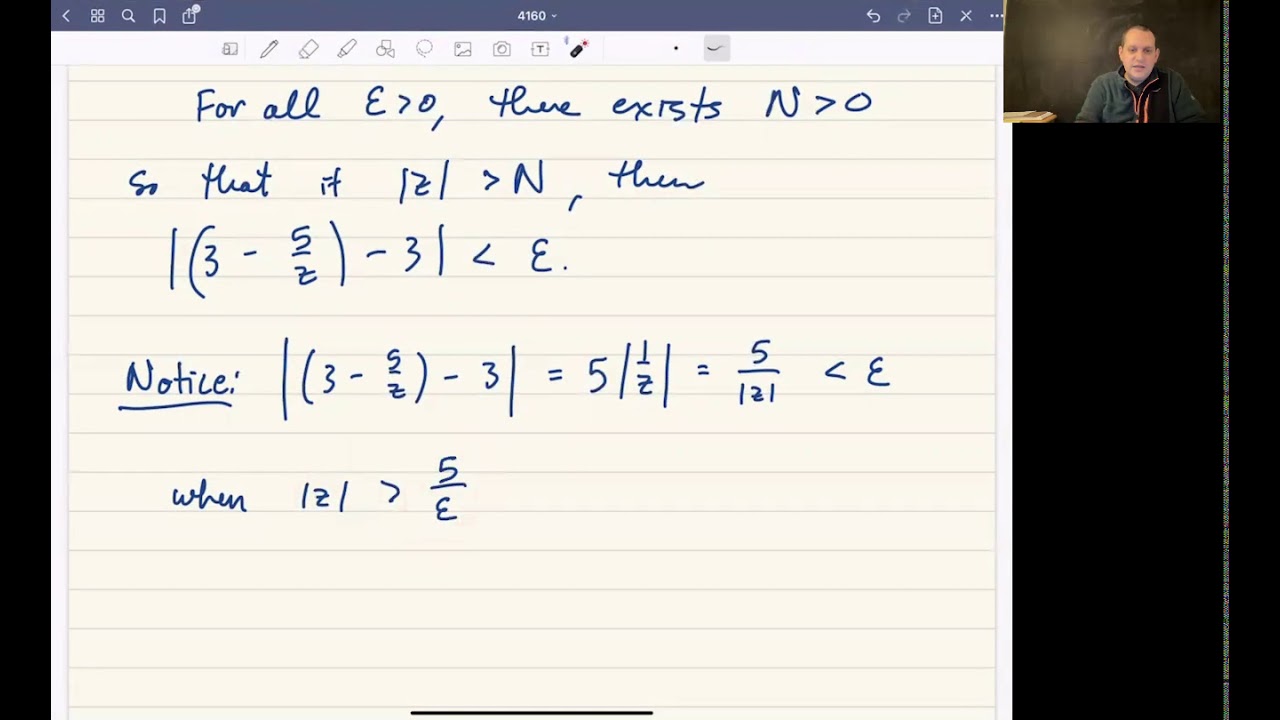 4160
For all ε>0, there exists N>0
so that if |z| > N, then
|(3 - 5/z) - 3| < ε.
Notice: |(3 - 5/z) - 3| = 5|1/z| = 5/|z| < ε
when |z| > 5/ε